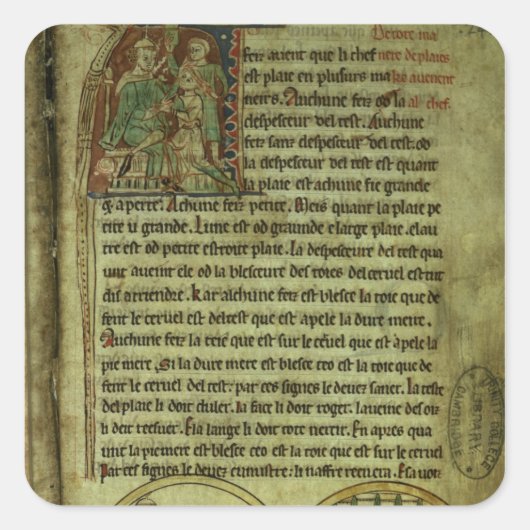 De tote ma
feiz avient que li chef nere de plaies
est plaie en plusurs ma ke avenent
neirs. Auchune feiz od la al chef.
despesceur del test. Auchune
feiz sanz despesceur del test. od
la despesceur del test est quant
la plaie est achune fie grande
& aperte. Achune feiz petite. Meis quant la plaie pe
tite u grande. Lune est od graunde e large plaie. elau
tre est od petite estroite plaie. La despesceure del test qua
unt avient ele od la blesceure des toies del cervel est tut
a tendre. Kar alchune feiz est blesce la toie que de
fent le cervel est del test que est apele la dure mere.
Auchune feiz la toie que est sur le cervel que est apele la
pie mere. Si la dure mere est blesce ceo est la toie que de
fent le cervel del test: par ces signes le devez saver. La teste
del plaie li doit duler. la face li doit roger. la veine des oilz
li doit E la lange li doit tote nercir. En apres qua
unt la piement est blesce ceo est la toie que est sur le cervel
Par ces signes le devez cunustre: li naffre E sa voiz
TRINITY COLLEGE
LIBRARY
CAMBRIDGE